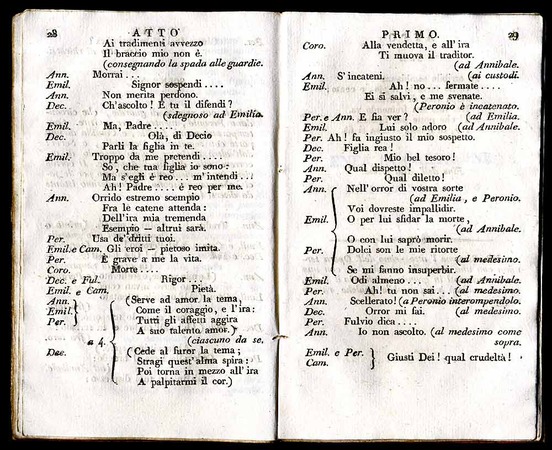 28
ATTO
Ai tradimenti avvezzo
Il braccio mio non è.
(consegnando la spada alle guardie.
Ann. Morrai ...
Emil. Signor sospendi ....
Ann. Non merita perdono.
Dec. Ch'ascolto! E tu il difendi?
(sdegnoso ad Emilia.
Emil. Ma, Padre ....
Dec. Olà, di Decio
Parli la figlia in te.
Emil. Troppo da me pretendi ....
So, che tua figlia io sono:
Ma s'egli è reo ... m'intendi ...
Ah! Padre .... è reo per me.
Ann. Orrido estremo scempio
Fra le catene attenda:
Dell'ira mia tremenda
Esempio — altrui sarà.
Per. Usa de' dritti tuoi.
Emil. e Cam. Gli eroi — pietoso imita.
Per. È grave a me la vita.
Coro. Morte ....
Dec. e Ful. Rigor ...
Emil. e Cam. Pietà.
Ann. (Serve ad amor la tema,
Emil. Come il coraggio, e l'ira:
Per. Tutti gli affetti aggira
a 4. A suo talento amor.)
(ciascuno da se.
Dec. (Cede al furor la tema;
Stragi quest'alma spira:
Poi torna in mezzo all'ira
A palpitarmi il cor.)
PRIMO.
29
Coro. Alla vendetta, e all'ira
Ti muova il traditor.
(ad Annibale.
Ann. S'incateni. (ai custodi.
Emil. Ah! no ... fermate ....
Ei si salvi, e me svenate.
(Peronio è incatenato.
Per. e Ann. E fia ver? (ad Emilia.
Emil. Lui solo adoro (ad Annibale.
Per. Ah! fa ingiusto il mio sospetto.
Dec. Figlia rea!
Per. Mio bel tesoro!
Ann. Qual dispetto!
Per. Qual diletto!
Ann. Nell'orror di vostra sorte
(ad Emilia, e Peronio.
Voi dovreste impallidir.
Emil. O per lui sfidar la morte,
(ad Annibale.
O con lui saprò morir.
Per. Dolci son le mie ritorte
(al medesimo.
Se mi fanno insuperbir.
Emil. Odi almeno ... (ad Annibale.
Per. Ah! tu non sai ... (al medesimo.
Ann. Scellerato! (a Peronio interompendolo.
Dec. Orror mi fai. (al medesimo.
Per. Fulvio dica ....
Ann. Io non ascolto. (al medesimo come
sopra.
Emil. e Per.
Cam. Giusti Dei! qual crudeltà!